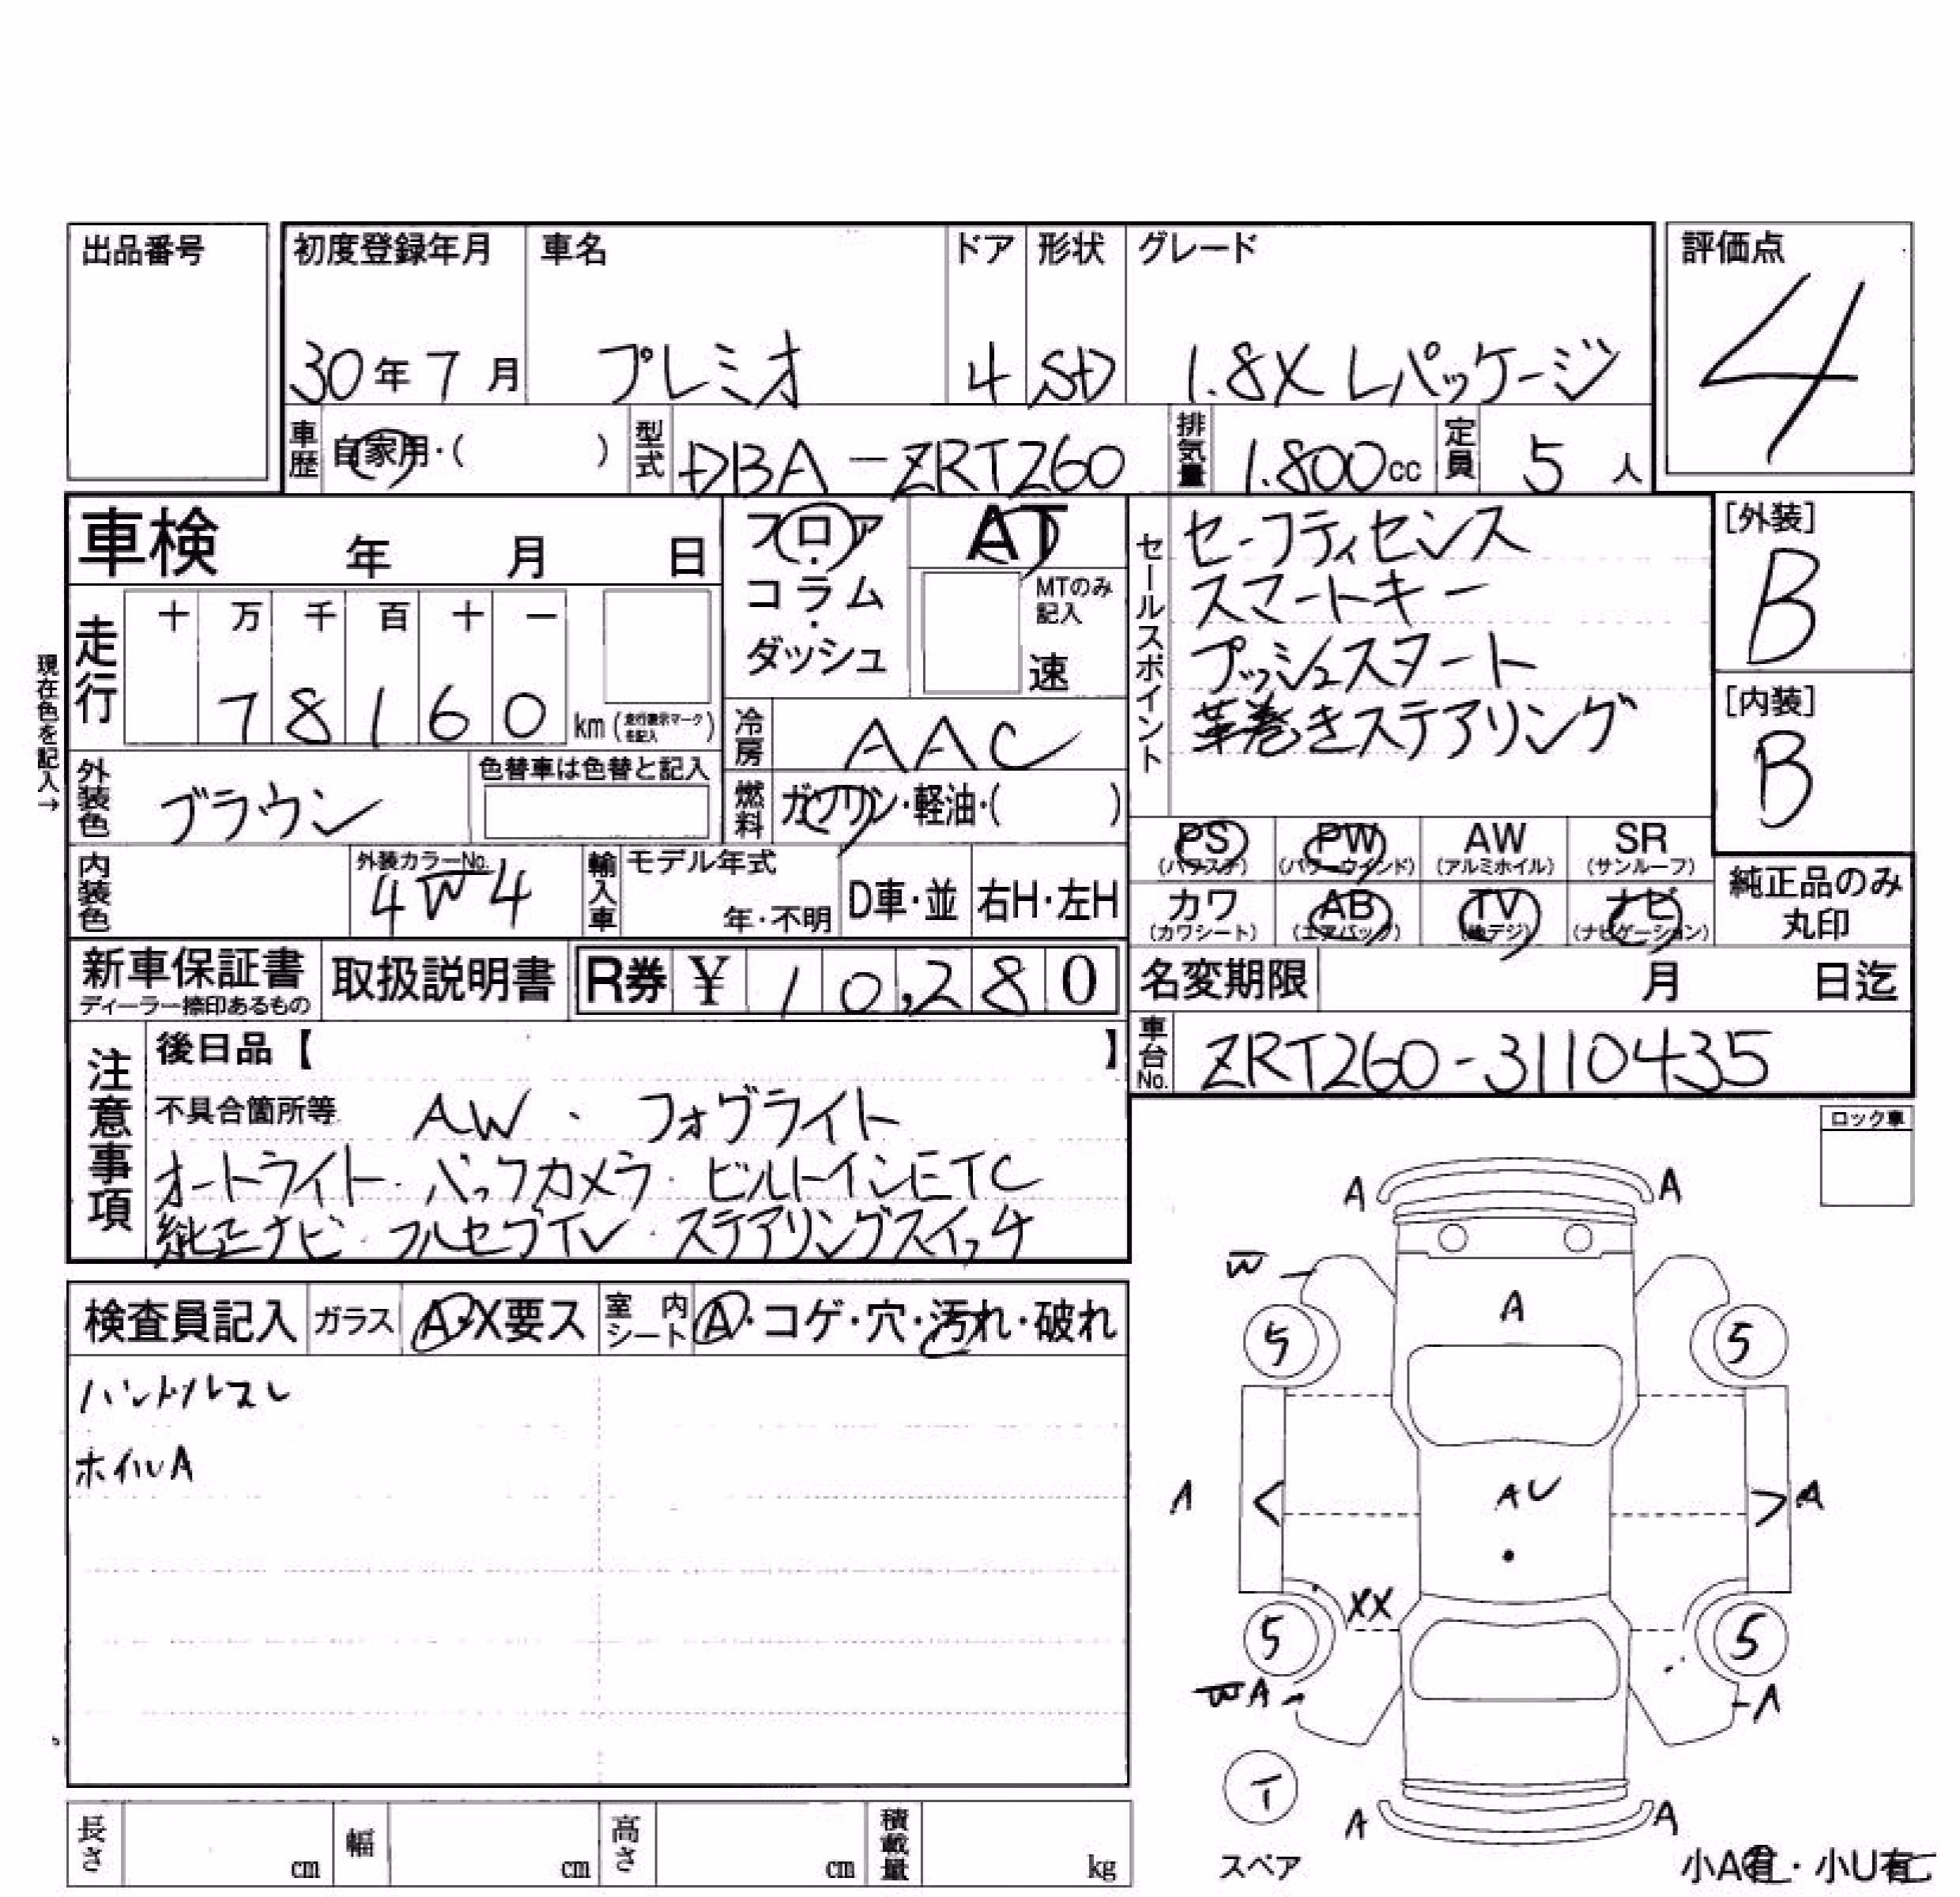 出品番号
初度登録年月 車名 ドア 形状 グレード 評価点
30年7月 プレミオ 4 SD 1.8X Lパッケージ 4
車歴 自家用・( ) 型式 DBA-ZRT260 排気量 1.800cc 定員 5人
車検 年 月 日
フロア・コラム・ダッシュ
AT
MTのみ記入
速
セールスポイント
セーフティセンス
スマートキー
プッシュスタート
革巻きステアリング
[外装]
B
[内装]
B
現在色を記入→
走行 十 万 千 百 十 一
78160 km (走行表示マークを記入)
冷房 AAC
外装色 ブラウン 色替車は色替と記入
燃料 ガソリン・軽油・( )
PS (パワステ) PW (パワーウインド) AW (アルミホイル) SR (サンルーフ)
カワ (カワシート) AB (エアバッグ) TV (地デジ) ナビ (ナビゲーション)
純正品のみ丸印
内装色 外装カラーNo. 4W4 輸入車 モデル年式 年・不明 D車・並 右H・左H
新車保証書 ディーラー捺印あるもの 取扱説明書 R券 ¥ 10,280
名変期限 月 日迄
車台No. ZRT260-3110435
注意事項
後日品【 】
不具合箇所等 AW・フォグライト
オートライト・バックカメラ・ビルトインETC
純正ナビ・フルセグTV・ステアリングスイッチ
ロック車
検査員記入 ガラス A・X要ス 室内シート A・コゲ・穴・汚れ・破れ
ハンドルスレ
ホイルA
A A
W
A
5 5
A < AU > A
XX
5 5
WA A
T
スペア
A A
長さ cm 幅 cm 高さ cm 積載量 kg
小A有・小U有